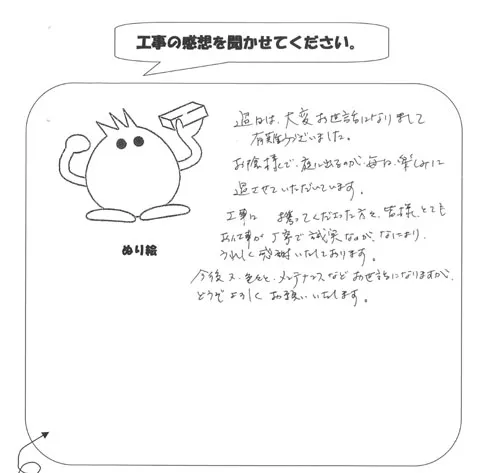 工事の感想を聞かせてください。
過日は、大変お世話になりまして
有難うございました。
お陰様で、庭に出るのが、毎日、楽しみに
過させていただいています。
工事に 携ってくださった方々、皆様、とても
お仕事が丁寧で誠実なのが、なにより、
うれしく感謝いたしております。
今後又、色々と、メンテナンスなどお世話になりますが、
どうぞよろしくお願いいたします。
ぬり絵